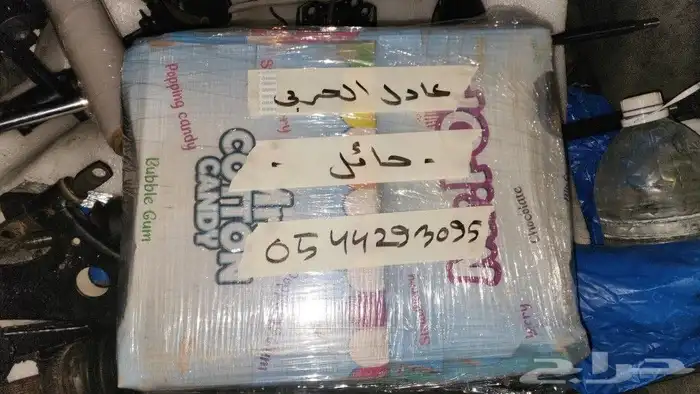 Popping candy
Bubble Gum
COTTON
CANDY
عادل الحربي
- حائل -
0544293095
Chocolate
حراج